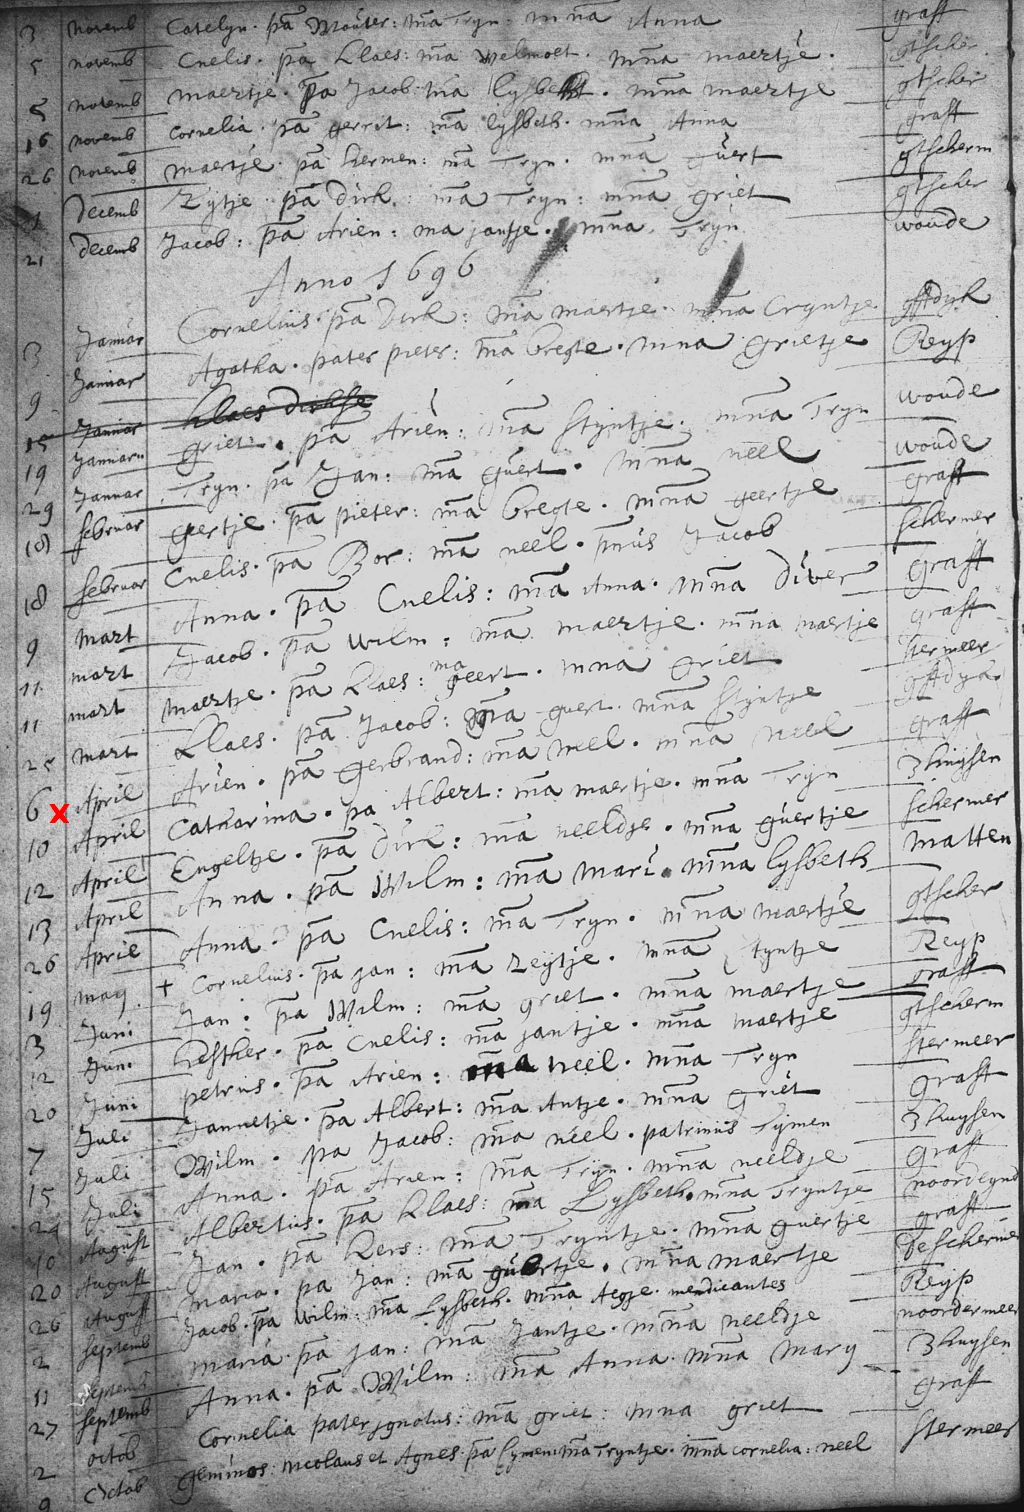 3 novemb Catelyn. pa Wouter: ma Tryn: mna Anna graft
5 novemb Cnelis. pa Klaes: ma welmoet. mna maertje. gtscher
5 novemb maertje. pa Jacob ma lysbeth. mna maertje gtscher
16 novemb Cornelia. pa gerrit: ma lysbeth. mna Anna graft
26 novemb maertje. pa hermen: ma Tryn. mna guert gtscherm
1 decemb Zijtje. pa Dirk: ma Tryn: mna griet gtscher
21 decemb Jacob: pa Arien: ma jantje. mna Tryn woude
Anno 1696
3 Januar Cornelius. pa Dirk: ma maertje. mna Tryntje gftdyk
9 Januar Agatha. pater pieter: ma bregte. mna grietje Reyp
15 Januar Klaes dirkse
19 Januari griet. pa Arien: ma Stijntje. mna Tryn woude
29 Januar Tryn. pa Jan: ma guert. mna neel woude
18 februar geertje. pa pieter: ma bregte. mna geertje graft
18 februar Cnelis. pa Bor: ma neel. pnus Jacob schermer
9 mart Anna. pa Cnelis: ma Anna. mna Diver graft
11 mart Jacob. pa Wilm: ma maertje. mna maertje graft
11 mart maertje. pa klaes: ma geert. mna griet stermeer
25 mart Klaes. pa Jacob: ma guert. mna Stijntje gftdyk
6 x April Arien. pa gerbrand: ma neel. mna neel graft
10 April Catharina. pa Albert: ma maertje. mna Tryn 3 huijsen
12 April Engeltje. pa Dirk: ma neeldje. mna guertje schermer
13 April Anna. pa Wilm: ma mari. mna lysbeth matten
26 April Anna. pa Cnelis: ma Tryn. mna maertje gtscher
19 may + Cornelius. pa jan: ma Zeijtje. mna tyntje Reyp
3 Juni Jan. pa Wilm: ma griet. mna maertje graft
12 Juni hesther. pa Cnelis: ma jantje. mna maertje gtscherm
20 Juni petrus. pa Arien: ma neel. mna Tryn stermeer
7 Juli Jannetje. pa Albert: ma Antje. mna griet graft
15 Juli Wilm. pa Jacob: ma neel. patrinus Tymen 3 huysen
24 Juli Anna. pa Arien: ma Tryn. mna neeldje graft
10 August Albertus. pa Klaes: ma Lysbeth. mna Tryntje noordeynd
20 August Jan. pa Kers: ma Tryntje. mna guertje graft
26 August maria. pa Jan: ma guertje. mna maertje beschermer
2 septemb Jacob. pa wilm: ma Lysbeth. mna Aegje. mendicantes Reijp
11 septemb maria. pa jan: ma Jantje. mna neeldje noordermeer
27 septemb Anna. pa Wilm: ma Anna. mna mary 3 huysen
2 octob Cornelia pater jgnotus: ma griet: mna griet graft
9 Octob geminos: nicolaus et Agnes. pa Symen: ma Tryntje. mna cornelia: neel stermeer